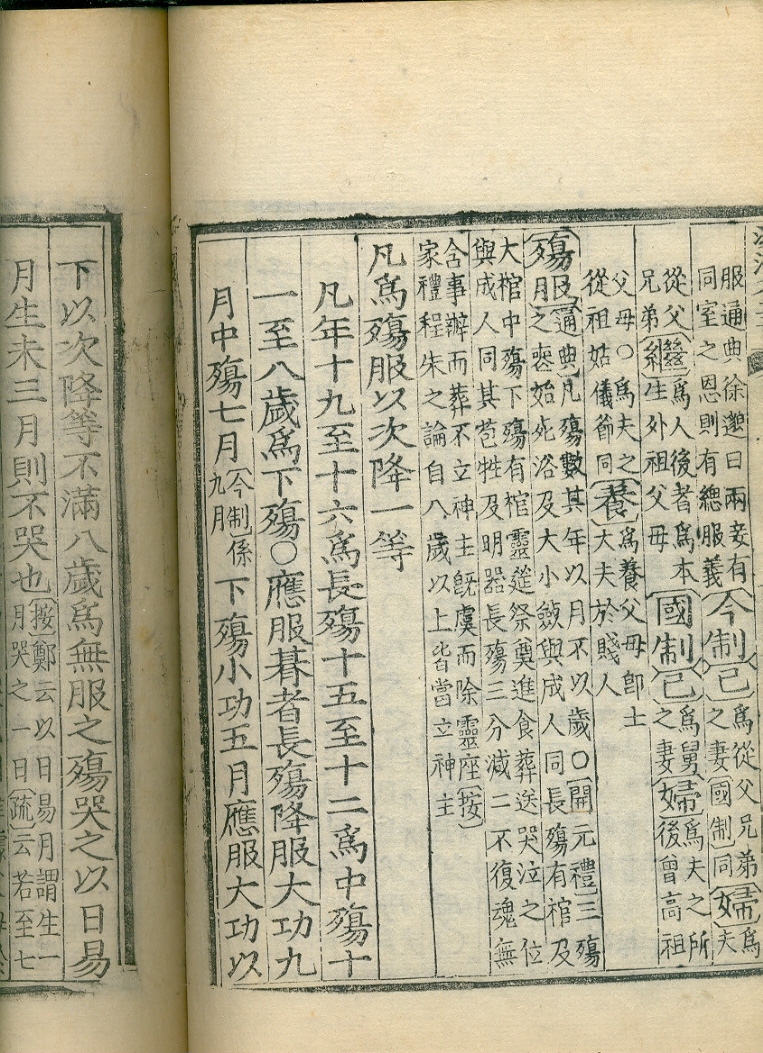 服通典徐邈曰兩妾有
同室之恩則有緦服義
今制己爲從父兄弟
之妻國制同婦爲
夫
從父
兄弟繼爲人後者爲本
生外祖父母
國制己爲舅
之妻婦爲夫之所
後曾高祖
父母○爲夫之
從祖姑儀節同養爲養父母卽士
大夫於賤人
殤服通典凡殤數其年以月不以歲○開元禮三殤
之喪始死浴及大小斂與成人同長殤有棺及
大棺中殤下殤有棺靈筵祭奠進食葬送哭泣之位
與成人同其苞牲及明器長殤三分減二不復魂無
含事辦而葬不立神主旣虞而除靈座按
家禮程朱之論自八歲以上皆當立神主
凡爲殤服以次降一等
凡年十九至十六爲長殤十五至十二爲中殤十
一至八歲爲下殤○應服朞者長殤降服大功九
月中殤七月今制係
九月下殤小功五月應服大功以
下以次降等不滿八歲爲無服之殤哭之以日易
月生未三月則不哭也按鄭云以日易月謂生一
月哭之一日疏云若至七